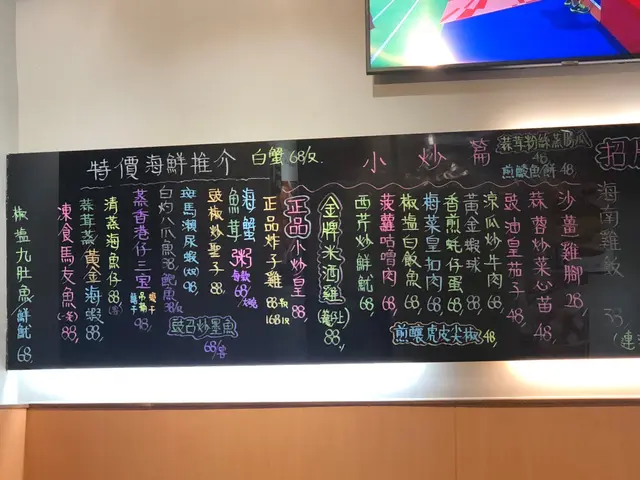 特價海鮮推介
白蟹 68/隻
椒塩九肚魚/鮮魷 68
凍食馬友魚(条) 88
蒜茸蒸黃金海蝦 88
清蒸海魚仔 88
蒸香港仔三宝 98
白灼八爪魚 38
斑馬瀨尿蝦 98
豉椒炒聖子 88
海蟹粥
魚茸
正品炸子雞 88 168
正品小炒皇 88
68
小炒篇
蒜茸粉絲蒸
48
煎鯪魚餅 48
金牌米酒雞 88
西芹炒鮮魷 68
菠蘿咕嚕肉 68
椒塩白飯魚 68
梅菜皇扣肉 68
香煎蚝仔蛋 68
黃金蝦球 88
涼瓜炒牛肉 68
豉油皇茄子 48
蒜蓉炒菜心苗 48
沙薑雞腳 28
煎釀虎皮尖椒 48
招牌
海南雞飯 58